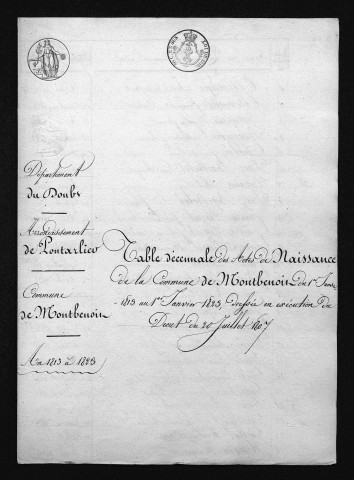 Département
du Doubs
Arrondissement
de Pontarlier
Commune
de Montbenoit
An 1813 à 1823
Table décennale des Actes de Naissance
de la Commune de Montbenoit, du 1er Janv.
1813 au 1er Janvier 1823, dressée en exécution du
Décret du 20 Juillet 1807